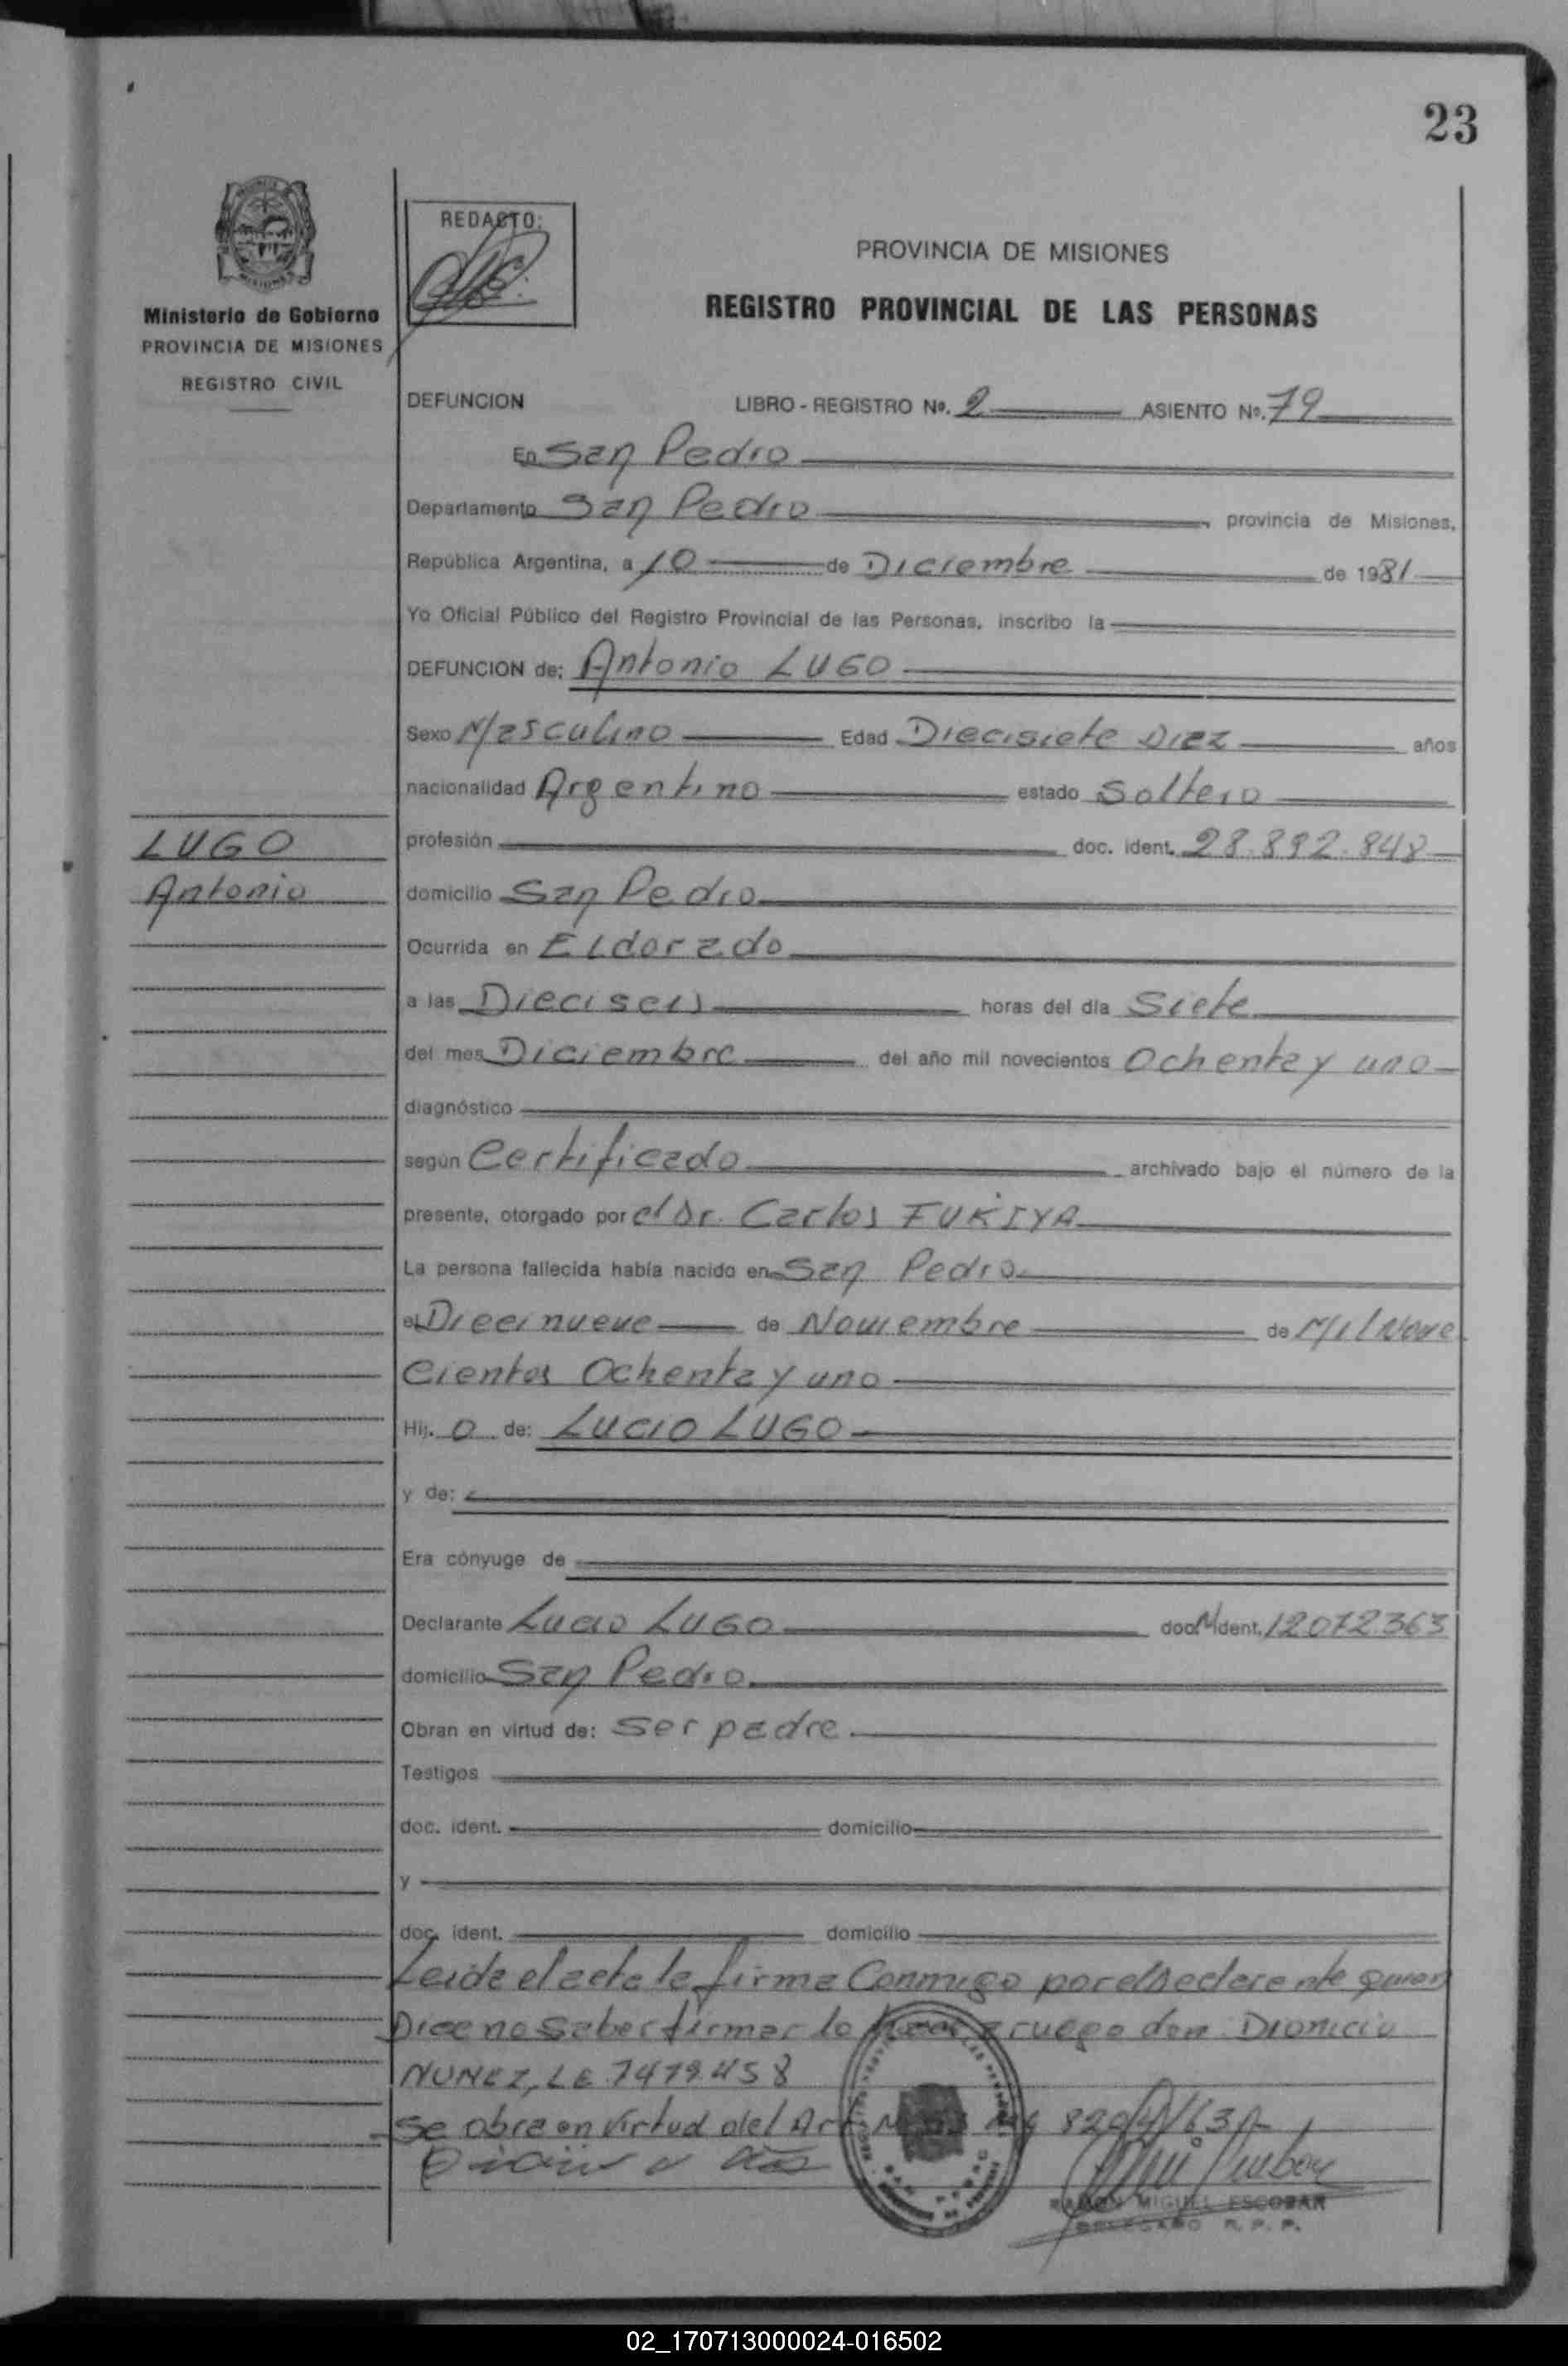 23
REDACTO:
Ministerio de Gobierno
PROVINCIA DE MISIONES
REGISTRO CIVIL
PROVINCIA DE MISIONES
REGISTRO PROVINCIAL DE LAS PERSONAS
DEFUNCION LIBRO - REGISTRO Nº. 2 ASIENTO Nº. 79
En San Pedro
Departamento San Pedro, provincia de Misiones,
República Argentina, a 10 de Diciembre de 1981
Yo Oficial Público del Registro Provincial de las Personas, inscribo la
DEFUNCION de: Antonio LUGO
Sexo Masculino Edad Diecisiete Diaz años
nacionalidad Argentino estado Soltero
profesión doc. ident. 28.892.848
domicilio San Pedro
LUGO
Antonio
Ocurrida en Eldorado
a las Dieciseis horas del día Siete
del mes Diciembre del año mil novecientos Ochenta y uno
diagnóstico
según Certificado archivado bajo el número de la
presente, otorgado por el Dr. Carlos FUKIYA
La persona fallecida había nacido en San Pedro
el Diecinueve de Noviembre de Mil Nove
Cientos Ochenta y uno
Hij. o de: LUCIO LUGO
y de:
Era cónyuge de
Declarante Lucio LUGO doc. ident. 12072363
domicilio San Pedro
Obran en virtud de: Ser padre
Testigos
doc. ident. domicilio
y
doc. ident. domicilio
Leida el acta la firma Conmigo por el Declarante quien
Dice no Saber firmar lo hace a ruego don Dionicio
NUNEZ, LE 7479.458
Se obra en Virtud del Art
RAMON MIGUEL ESCOBAR
DELEGADO R. P. P.
02_170713000024-016502